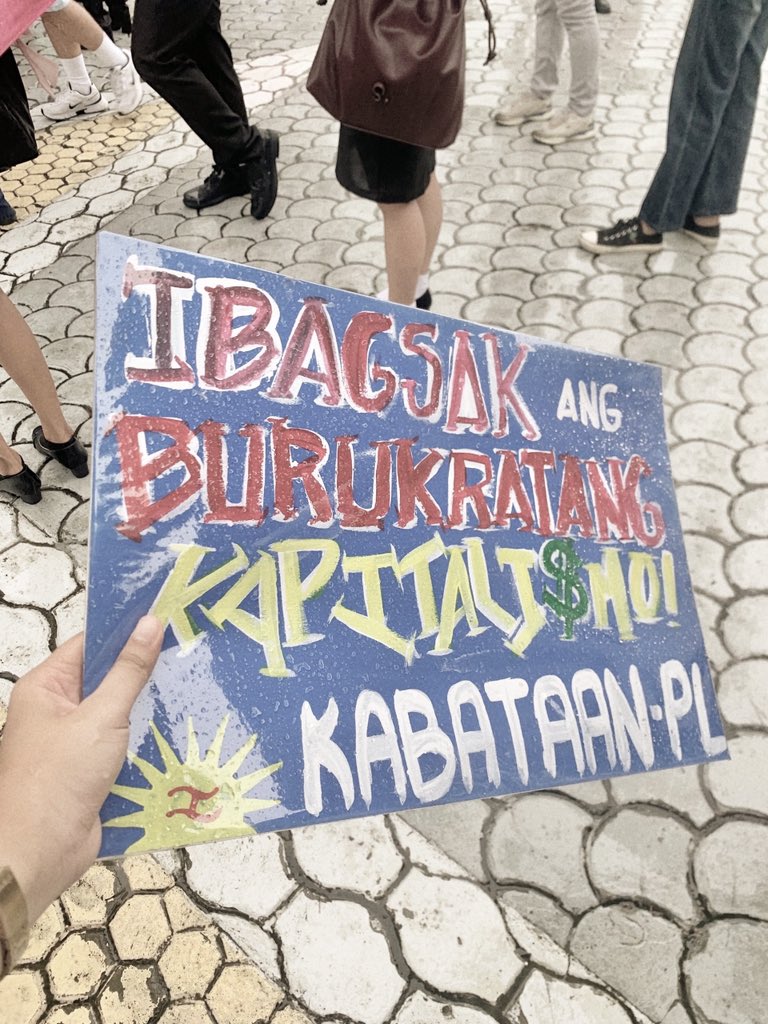 IBAGSAK ANG
BURUKRATANG
KAPITALI$MO!
KABATAAN-PL